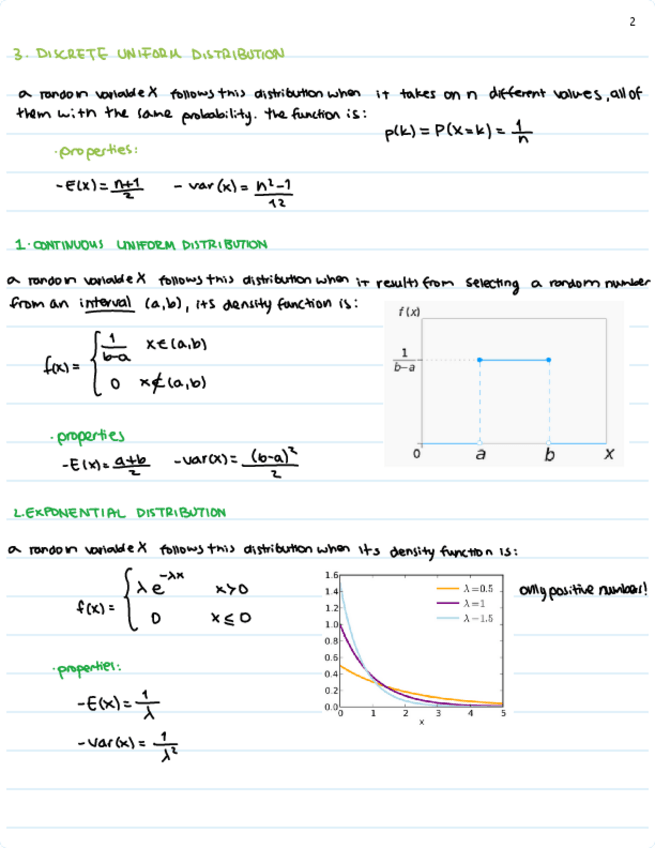 2
3. DISCRETE UNIFORM DISTRIBUTION
a random variable X follows this distribution when it takes on n different values, all of
them with the same probability. the function is:
p(k) = P(X=k) = 1/n
· properties:
- E(X) = n+1/2 - var(x) = n²-1/12
1. CONTINUOUS UNIFORM DISTRIBUTION
a random variable X follows this distribution when it results from selecting a random number
from an interval (a,b), its density function is:
f(x) = { 1/b-a x∈(a,b)
0 x∉(a,b)
f(x)
1/b-a
0 a b x
· properties
- E(x) = a+b/2 - var(x) = (b-a)²/2
2. EXPONENTIAL DISTRIBUTION
a random variable X follows this distribution when its density function is:
f(x) = { λe^-λx x>0
0 x≤0
1.6
1.4
1.2
1.0
0.8
0.6
0.4
0.2
0.0
0 1 2 3 4 5
x
λ=0.5
λ=1
λ-1.5
only positive numbers!
· properties:
- E(x) = 1/λ
- var(x) = 1/λ²